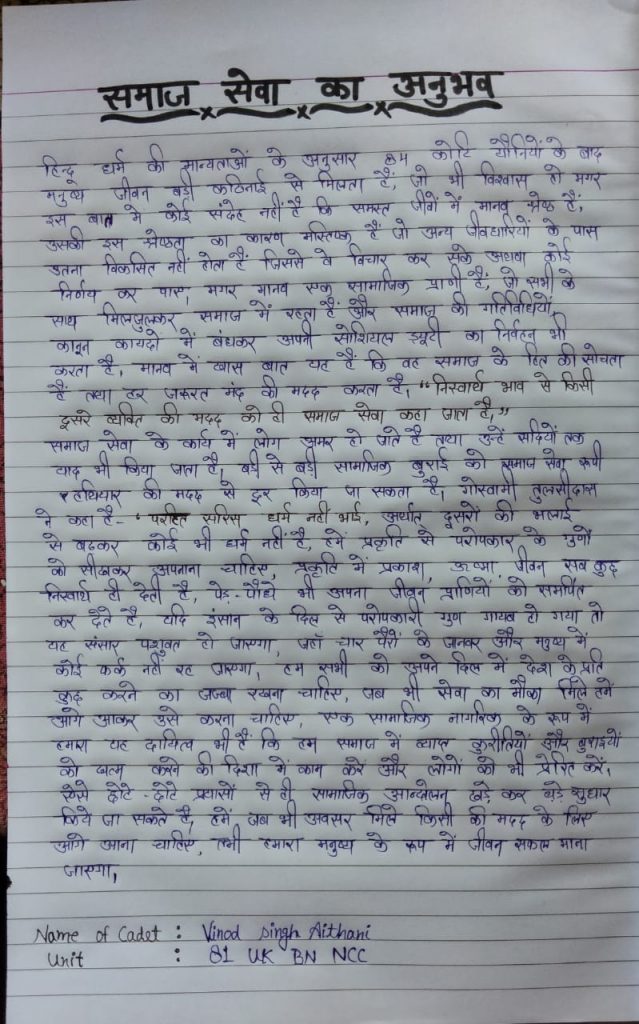 समाज सेवा का अनुभव
हिन्दू धर्म की मान्यताओं के अनुसार 84 कोटि यौनियों के बाद
मनुष्य जीवन बड़ी कठिनाई से मिलता है, जो भी विश्वास हो मगर
इस बात मे कोई संदेह नहीं है कि समस्त जीवों में मानव श्रेष्ठ है,
उसकी इस श्रेष्ठता का कारण मस्तिष्क है जो अन्य जीवधारियों के पास
इतना विकसित नहीं होता है जिससे वे विचार कर सके अथवा कोई
निर्णय कर पाए, मगर मानव एक सामाजिक प्राणी है, जो सभी के
साथ मिलजुलकर समाज में रहता है और समाज की गतिविधियों,
कानून कायदो में बंधकर अपनी सोशियल ड्यूटी का निर्वतन भी
करता है, मानव में खास बात यह है कि वह समाज के हित की सोचता
है तथा हर जरूरत मंद की मदद करता है, "निस्वार्थ भाव से किसी
दूसरे व्यक्ति की मदद को ही समाज सेवा कहा जाता है,"
समाज सेवा के कार्य में लोग अमर हो जाते है तथा उन्हें सदियों तक
याद भी किया जाता है, बड़ी से बड़ी सामाजिक बुराई को समाज सेवा रूपी
हथियार की मदद से दूर किया जा सकता है, गोस्वामी तुलसीदास
ने कहा है- "परहित सरिस धर्म नहीं भाई, अर्थात दूसरों की भलाई
से बढकर कोई भी धर्म नहीं है, हमें प्रकृति से परोपकार के गुणों
को सीखकर अपनाना चाहिए, प्रकृति में प्रकाश, ऊष्मा, जीवन सब कुछ
निस्वार्थ ही देती है, पेड़-पौधे भी अपना जीवन प्राणियों को समर्पित
कर देते है, यदि इंसान के दिल से परोपकारी गुण गायब हो गया तो
यह संसार पशुवत हो जाएगा, जहाँ चार पैरों के जानवर और मनुष्य में
कोई फर्क नहीं रह जाएगा, हम सभी को अपने दिल में देश के प्रति
कुछ करने का जज्बा रखना चाहिए, जब भी सेवा का मौका मिले हमें
आगे आकर उसे करना चाहिए, एक सामाजिक नागरिक के रूप में
हमारा यह दायित्व भी है कि हम समाज में व्याप्त कुरीतियों और बुराइयों
को खत्म करने की दिशा में काम करें और लोगों को भी प्रेरित करें,
ऐसे छोटे-छोटे प्रयासों से ही सामाजिक आन्दोलन खड़े कर बड़े सुधार
किये जा सकते है, हमें जब भी अवसर मिले किसी की मदद के लिए
आगे आना चाहिए, तभी हमारा मनुष्य के रूप में जीवन सफल माना
जाएगा,
Name of Cadet : Vinod Singh Aithani
Unit : 81 UK BN NCC